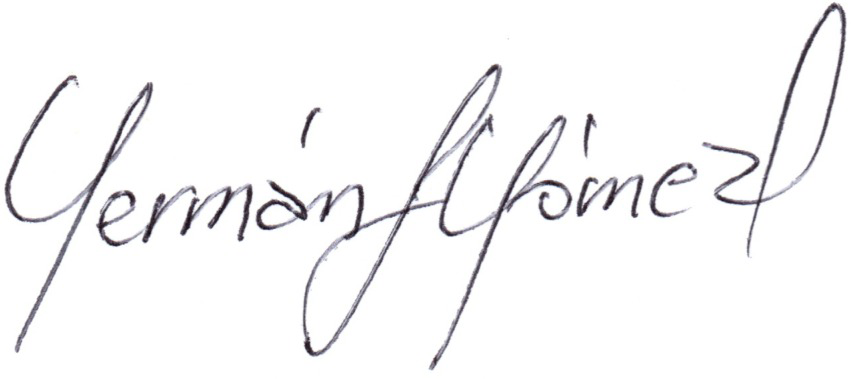 Germán Gómez